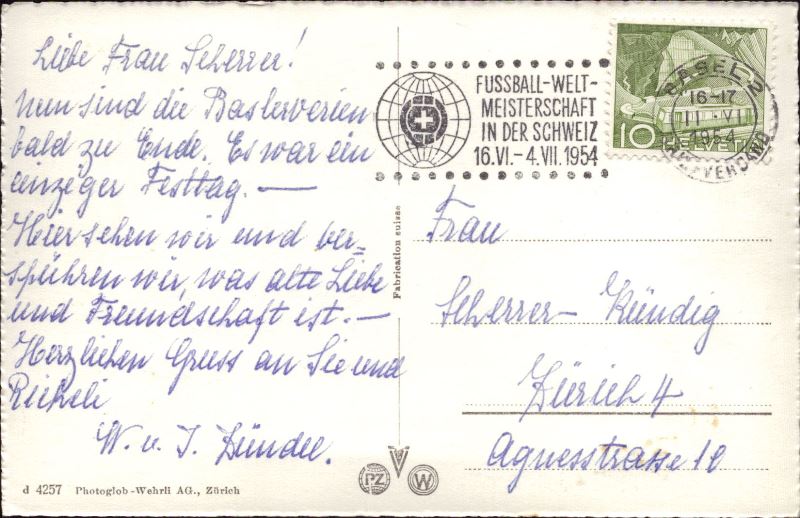 Liebe Frau Scherrer!
Nun sind die Baslerverien
bald zu Ende. Es war ein
einziger Festtag. —
Hier sehen wir und ver-
spühren wir, was alte Liebe
und Freundschaft ist. —
Herzlichen Gruss an Sie und
W. u. J. Zündel.
d 4257 Photoglob-Wehrli AG., Zürich
Fabrication suisse
FUSSBALL-WELT-
MEISTERSCHAFT
IN DER SCHWEIZ
16.VI.-4.VII.1954
BASEL 2
16-17
11.VI
1954
BRIEFVERSAND
10 HELVETIA
Frau
Scherrer-Kündig
Zürich 4
Agnesstrasse 10
PZ
W